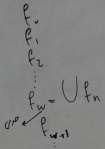 f₀
f₁
f₂
⋮
f_ω = ⋃ fₙ
f_ω+1